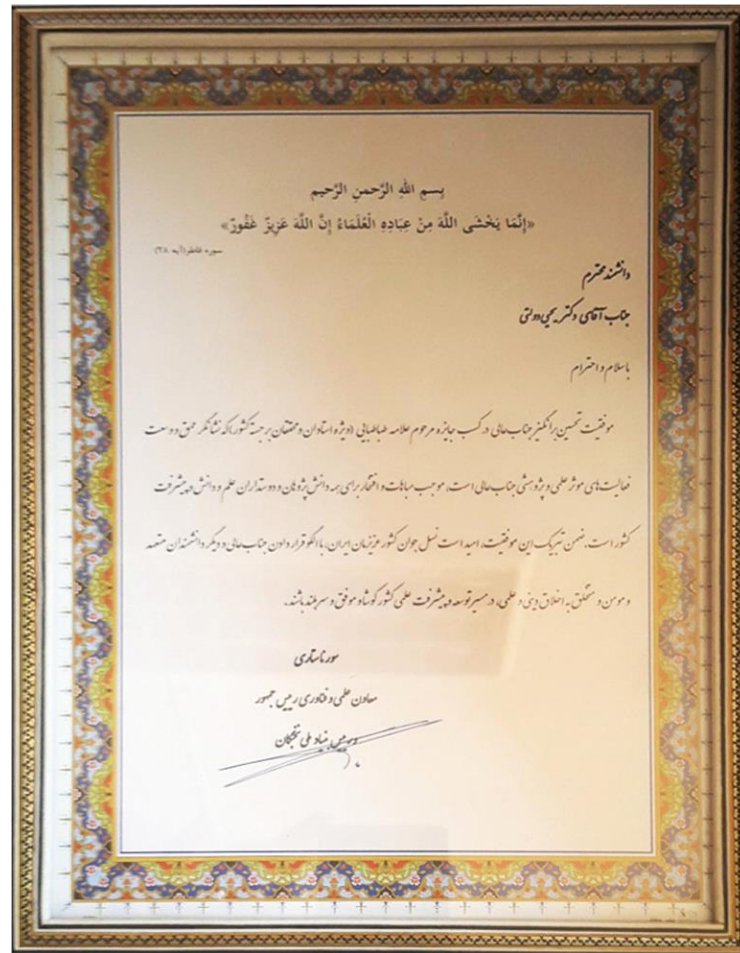 بِسمِ اللهِ الرَّحمنِ الرَّحیم
«إِنَّمَا يَخْشَى اللَّهَ مِنْ عِبَادِهِ الْعُلَمَاءُ إِنَّ اللَّهَ عَزِيزٌ غَفُورٌ»
سوره فاطر(آیه ۲۸)
دانشمند محترم
جناب آقای دکتر یحیی دولتی
با سلام و احترام
موفقیت تحسین برانگیز جناب عالی در کسب جایزه مرحوم علامه طباطبایی (ویژه استادان و محققان برجسته کشور) که نشانگر عمق و وسعت
فعالیت های موثر علمی و پژوهشی جناب عالی است، موجب مباهات و افتخار برای همه دانش پژوهان و دوستداران علم و دانش و پیشرفت
کشور است. ضمن تبریک این موفقیت، امید است نسل جوان کشور عزیزمان ایران، با الگو قرار دادن جناب عالی و دیگر دانشمندان متعهد
و مومن و متخلق به اخلاق دینی و علمی، در مسیر توسعه و پیشرفت علمی کشور کوشا و موفق و سربلند باشند.
سورنا ستاری
معاون علمی و فناوری رییس جمهور
و رییس بنیاد ملی نخبگان